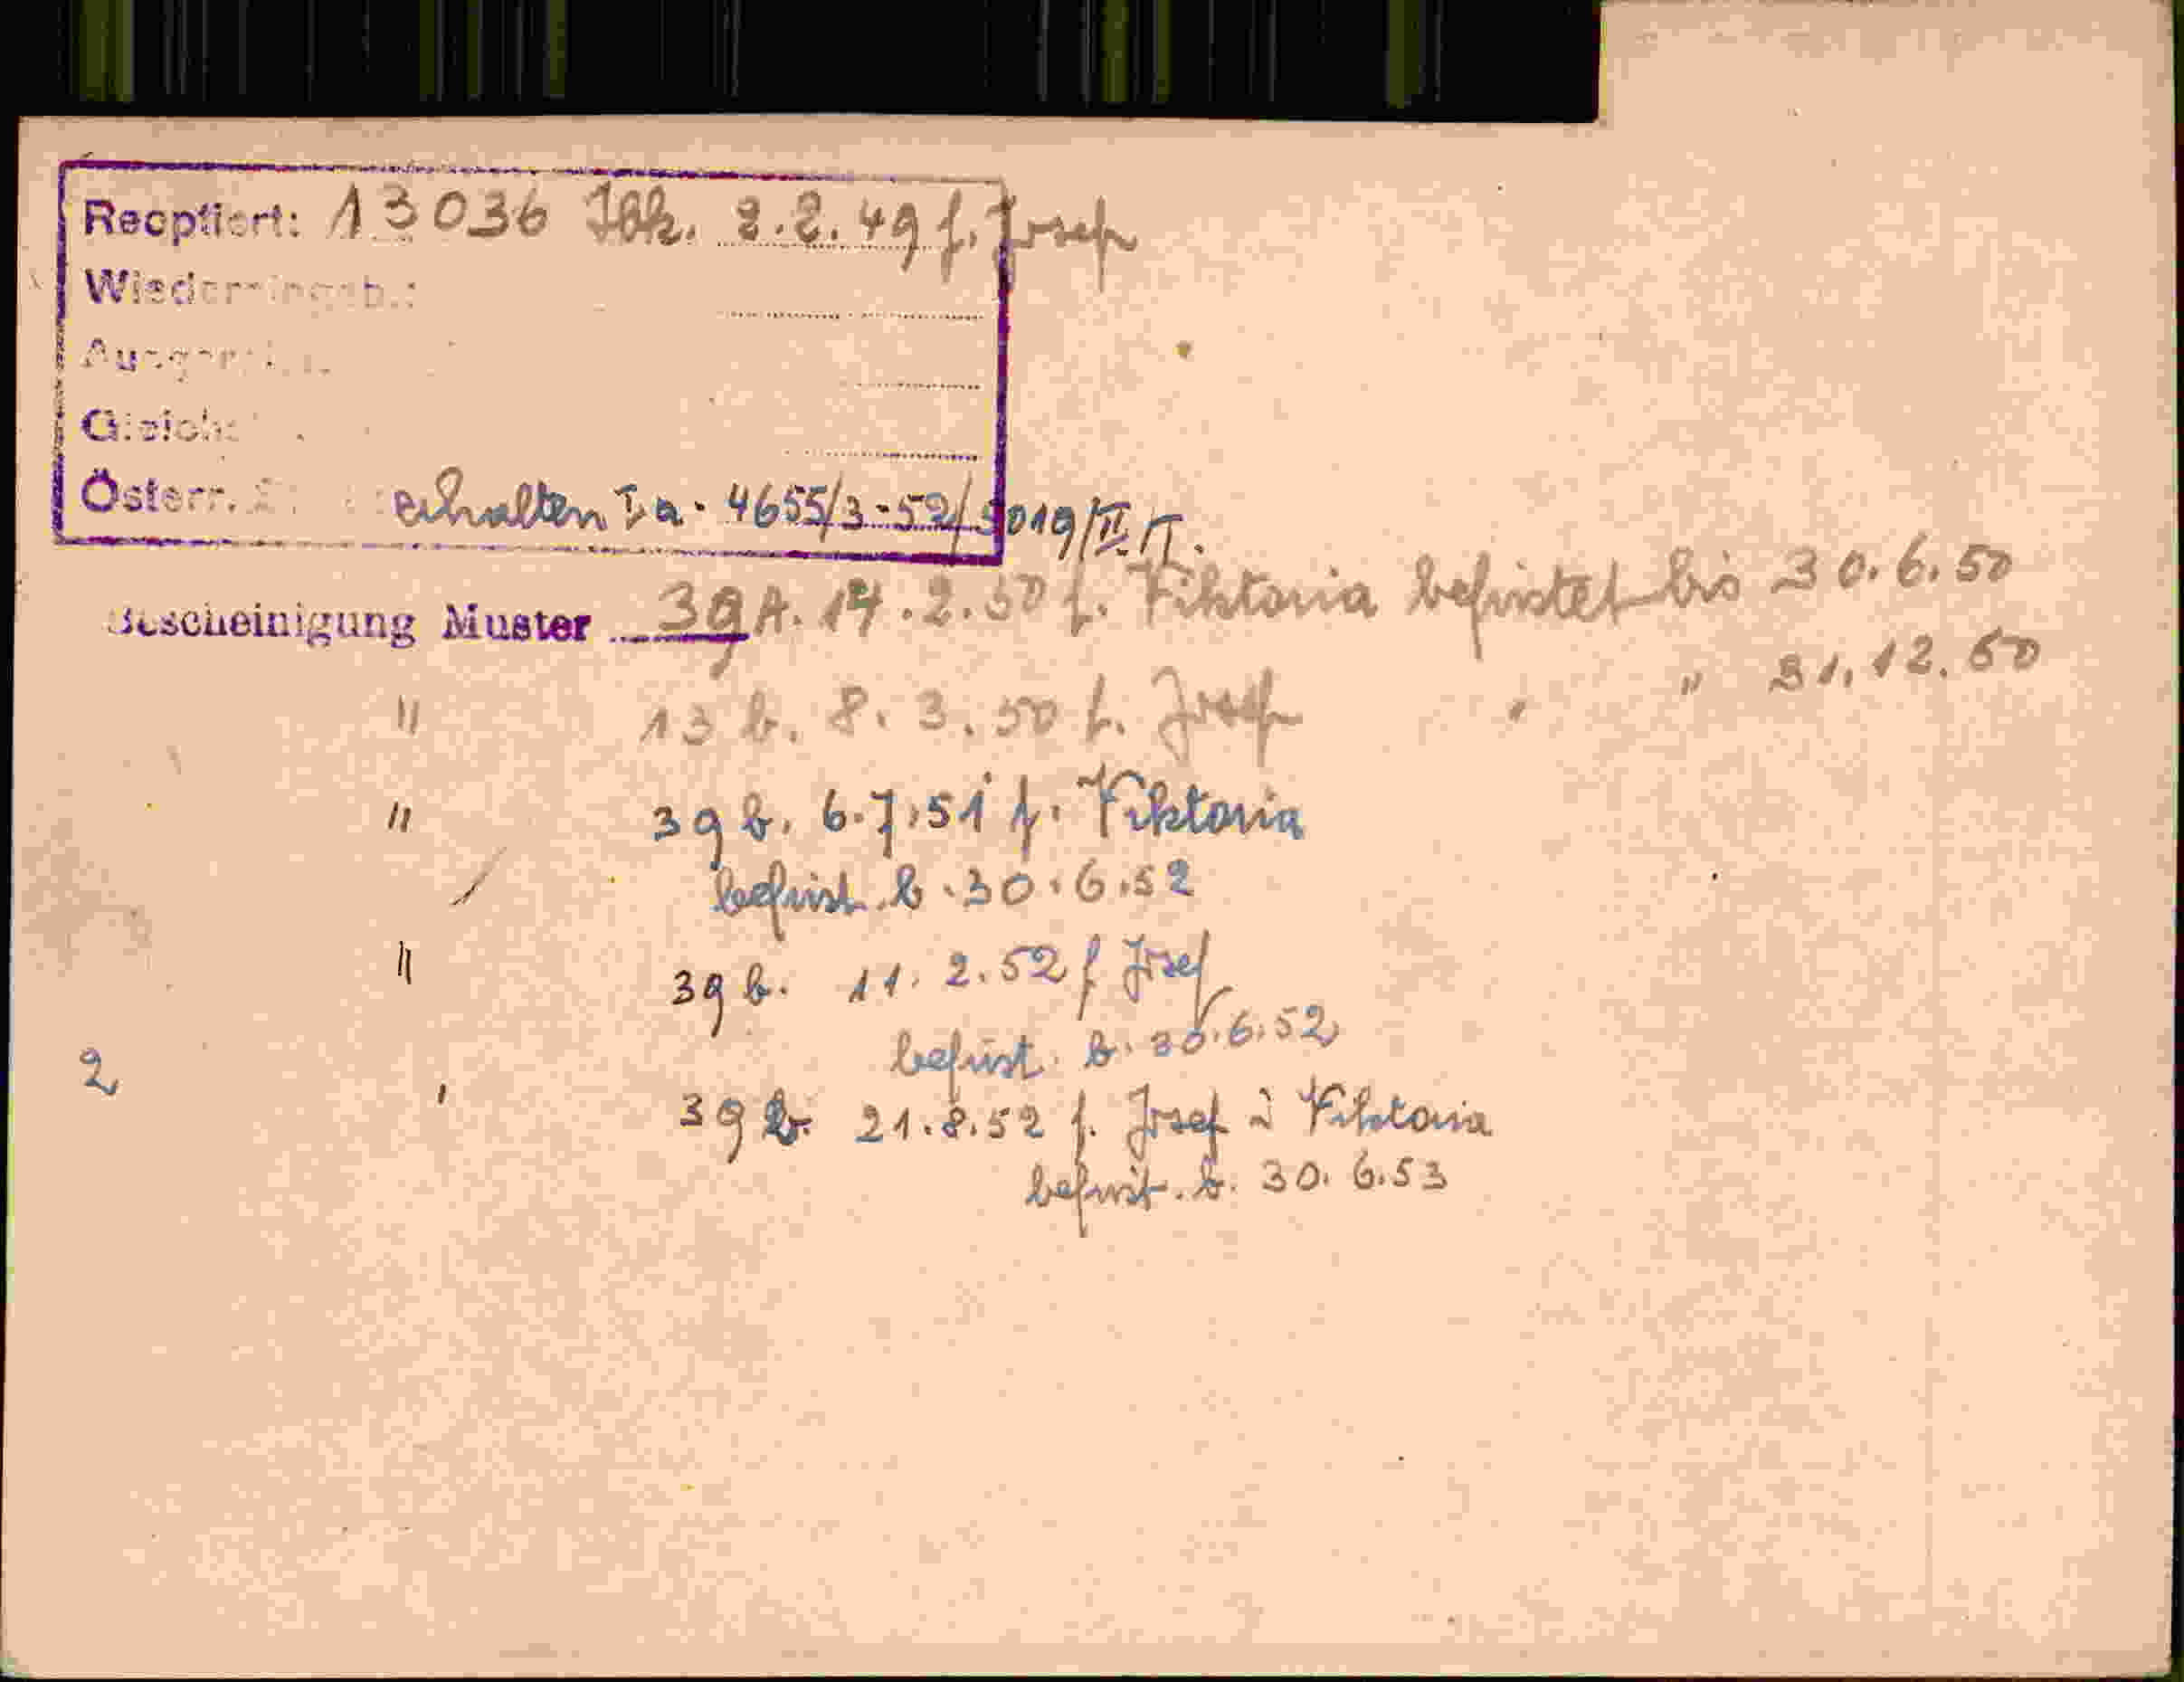 Reoptiert: 13036 Ibk. 2.2.49 f. Josef
Österr. erhalten I a - 4655/3-52/5019/II/T.
Bescheinigung Muster 39 A. 14.2.50 f. Viktoria befristet bis 30.6.50
" 13 b. 8.3.50 f. Josef " " 31.12.50
" 39 b. 6.7.51 f. Viktoria
befrist. b. 30.6.52
" 39 b. 11.2.52 f Josef
befrist. b. 30.6.52
2
39 b. 21.8.52 f. Josef Viktoria
befrist. b. 30.6.53